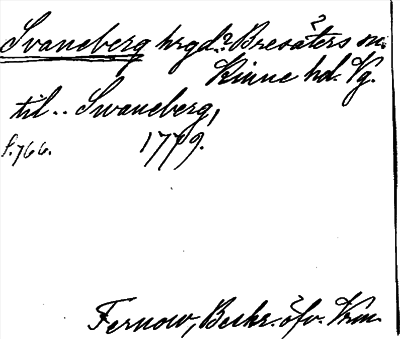 Svaneberg hrgd? Bresäters sn.
Kinne hd. Vg.
till.. Swaneberg,
s. 766. 1779.
Fernow, Beskr. öfv. Vrm.